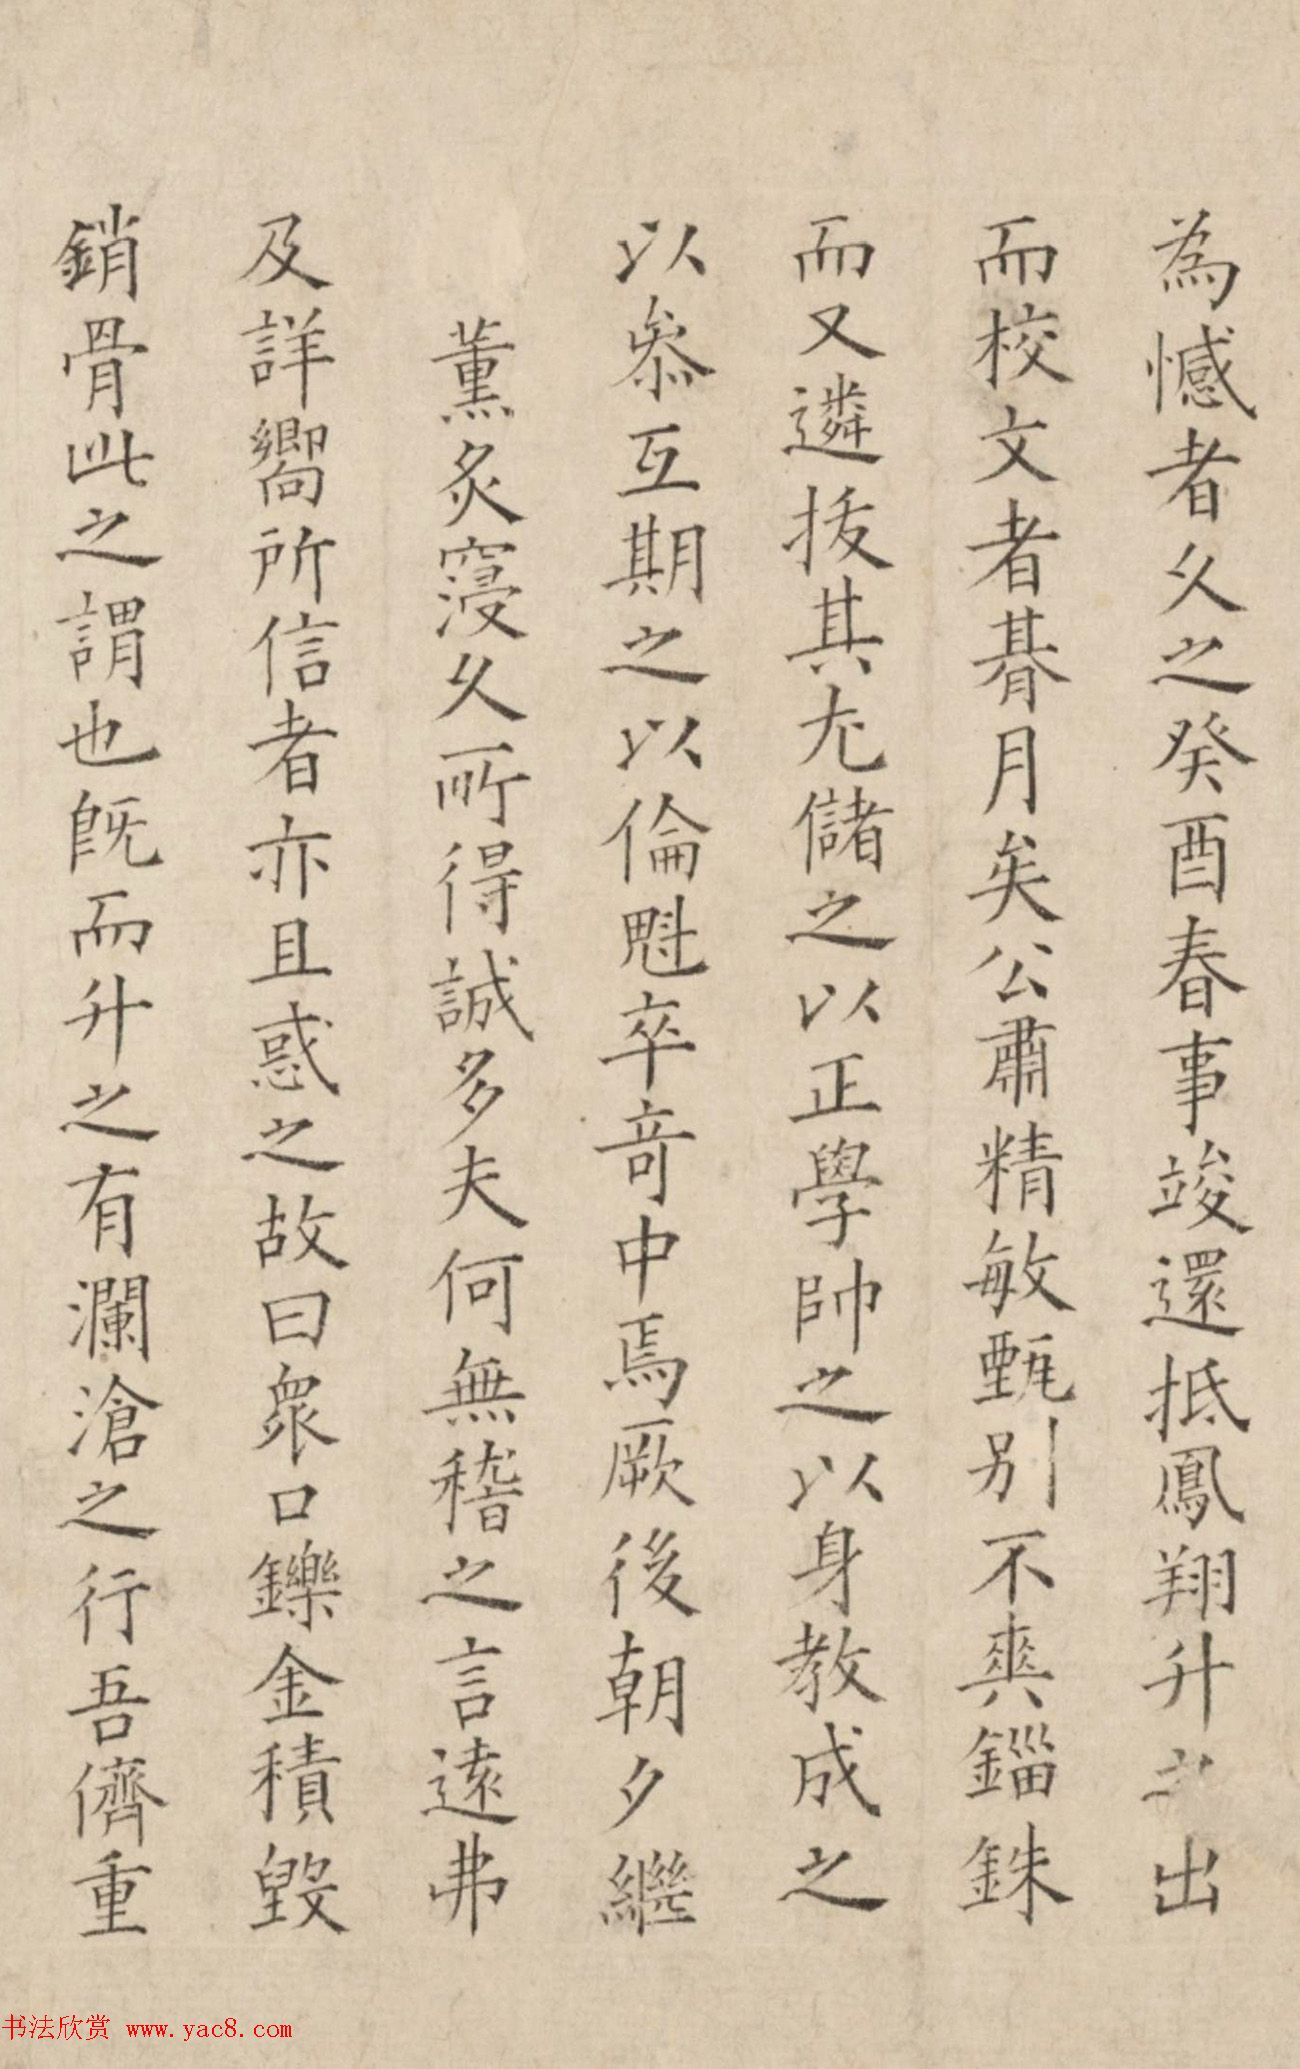 為憾者久之癸酉春事竣還抵鳳翔升之出
而校文者朞月矣公肅精敏甄别不爽錙銖
而又遴拔其尤儲之以正學帥之以身教成之
以叅互期之以倫魁卒奇中焉厥後朝夕繼
薰炙寖久所得誠多夫何無稽之言遠弗
及詳嚮所信者亦且惑之故曰衆口鑠金積毀
銷骨此之謂也旣而升之有瀾滄之行吾儕重
书法欣赏 www.yac8.com